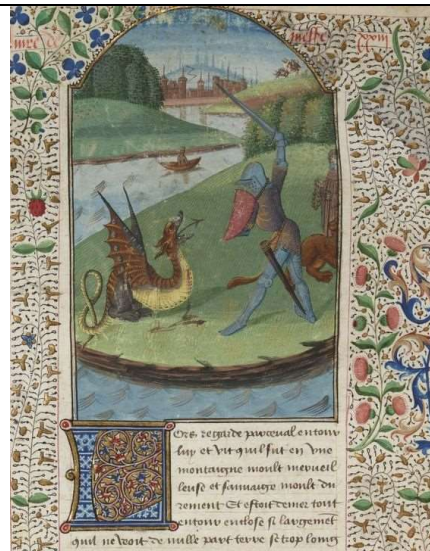 LOrs regarde perceual entour
luy et vit quil fut en vne
montaigne moult merueil
leuse et sauuaige moult du
rement Et estoit de mer tout
entour enclose si largemet
quil ne veoit de nulle part terre se trop loing